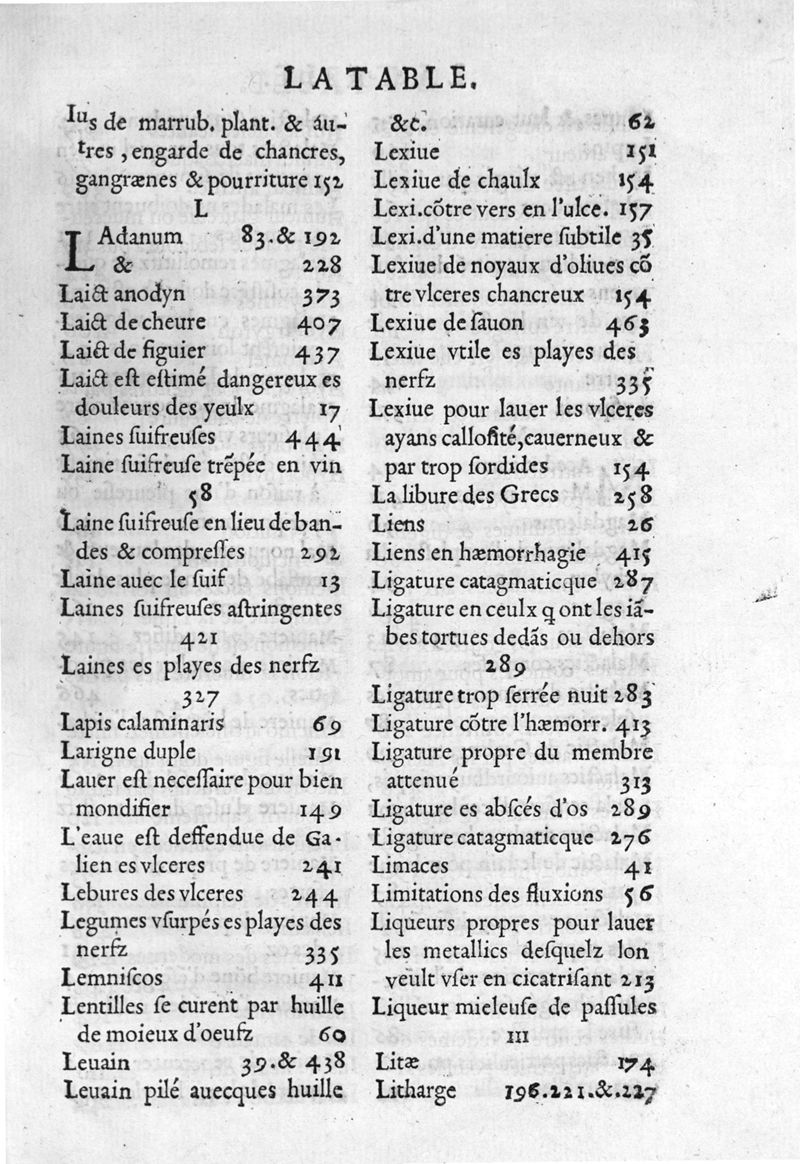 LA TABLE.
Ius de marrub. plant. & áu-
tres, engarde de chancres,
gangrænes & pourriture 152
L
LAdanum 83.& 192
& 228
Laict anodyn 373
Laict de cheure 407
Laict de figuier 437
Laict eſt eſtimé dangereux es
douleurs des yeulx 17
Laines ſuifreuſes 444
Laine ſuifreuſe trẽpée en vin
58
Laine ſuifreuſe en lieu de ban-
des & compreſſes 292
Laine auec le ſuif 13
Laines ſuifreuſes aſtringentes
421
Laines es playes des nerfz
327
Lapis calaminaris 69
Larigne duple 191
Lauer eſt neceſſaire pour bien
mondifier 149
L'eaue eſt deffendue de Ga-
lien es vlceres 241
Lebures des vlceres 244
Legumes vſurpés es playes des
nerfz 335
Lemniſcos 411
Lentilles ſe curent par huille
de moieux d'oeufz 60
Leuain 39.& 438
Leuain pilé auecques huille
&c. 62
Lexiue 151
Lexiue de chaulx 154
Lexi.cõtre vers en l'ulce. 157
Lexi.d'une matiere ſubtile 35
Lexiue de noyaux d'oliues cõ
tre vlceres chancreux 154
Lexiue de ſauon 463
Lexiue vtile es playes des
nerfz 335
Lexiue pour lauer les vlceres
ayans calloſité,cauerneux &
par trop ſordides 154
La libure des Grecs 258
Liens 26
Liens en hæmorrhagie 415
Ligature catagmaticque 287
Ligature en ceulx q ont les iã-
bes tortues dedãs ou dehors
289
Ligature trop ſerrée nuit 283
Ligature cõtre l'hæmorr. 413
Ligature propre du membre
attenué 313
Ligature es abſcés d'os 289
Ligature catagmaticque 276
Limaces 41
Limitations des fluxions 56
Liqueurs propres pour lauer
les metallics deſquelz lon
veult vſer en cicatriſant 213
Liqueur mieleuſe de paſſules
111
Litæ 174
Litharge 196.221.&.227